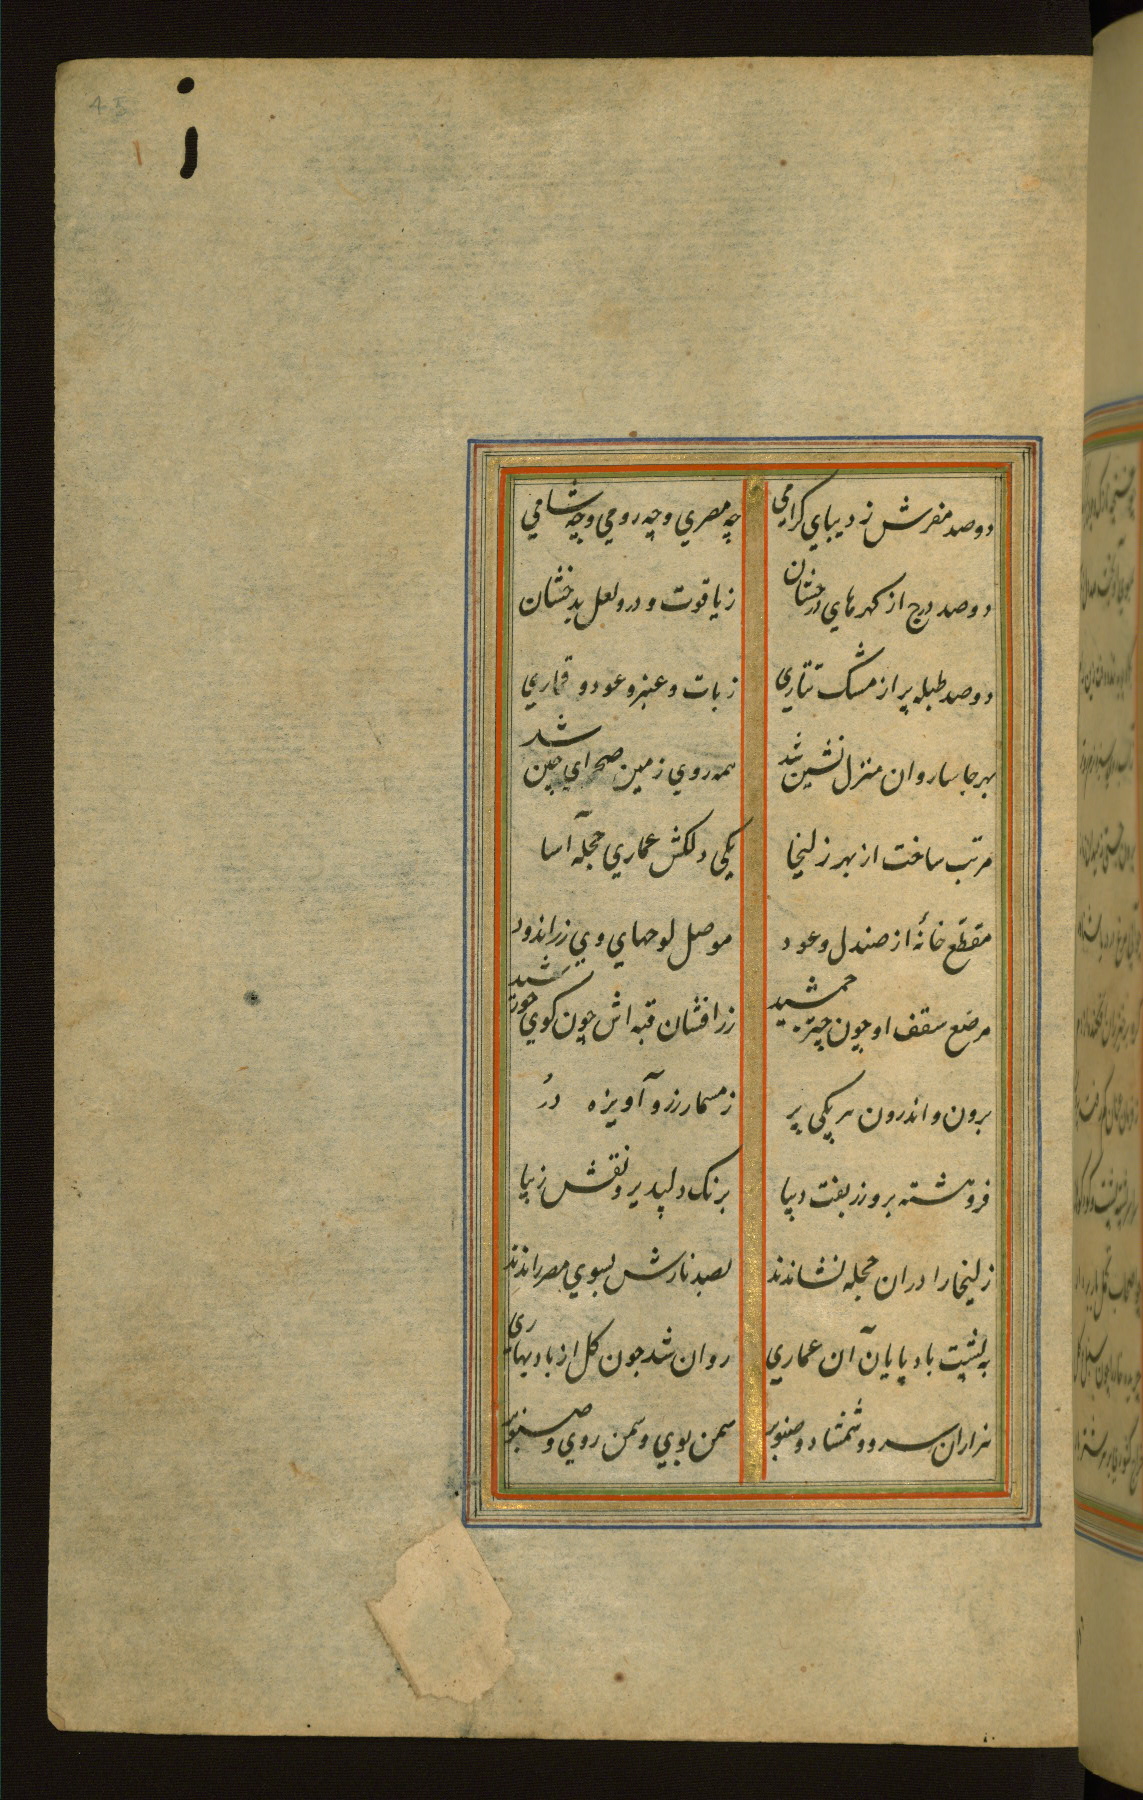 45
دوصد مفرش ز دیبای کرامی چه مصری و چه رومی و چه شامی
دوصد درج از کهرهای درخشان ز یاقوت و در و لعل بدخشان
دوصد طبله پر از مشک تتاری ز بات و عنبر و عود و قماری
بهر جا ساروان منزل نشین شد همه روی زمین صحرای چین شد
مرتب ساخت از بهر زلیخا یکی دلکش عماری حجله آسا
مقطع خانهٔ از صندل و عود موصل لوحهای وی زراندود
مرصع سقف او چون چتر جمشید زرافشان قبه اش چون کوی خورشید
برون و اندرون هر یکی پر ز مسمار زر و آویزه در
فروهشته برو زربفت دیبا برنک دلپذیر و نقش زیبا
زلیخا را دران حجله نشاندند بصد نازش بسوی مصر راندند
به پشت باد پایان آن عماری روان شد چون کل از باد بهاری
هزاران سرو و شمشاد و صنوبر سمن بوی و سمن روی و صنوبر